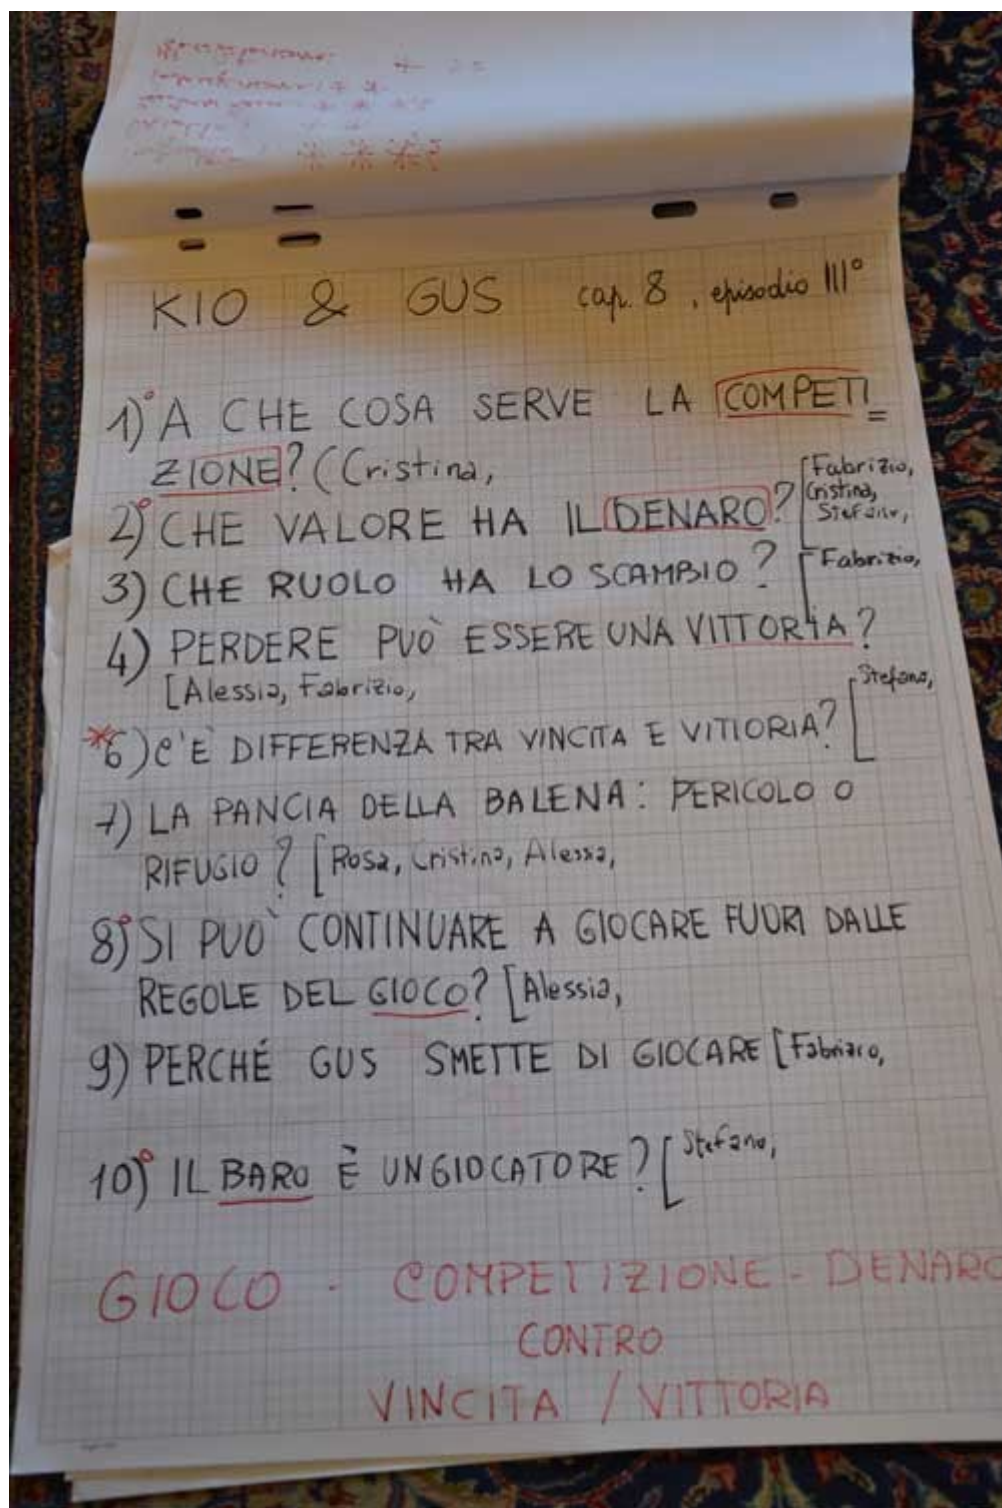 KIO & GUS cap. 8, episodio III°
1)° A CHE COSA SERVE LA COMPETI=
ZIONE? (Cristina,
2)° CHE VALORE HA IL DENARO? [Fabrizio,
Cristina,
Stefano,
3) CHE RUOLO HA LO SCAMBIO? [Fabrizio,
4) PERDERE PUÒ ESSERE UNA VITTORIA?
[Alessia, Fabrizio,
*6) C'È DIFFERENZA TRA VINCITA E VITTORIA? [Stefano,
7) LA PANCIA DELLA BALENA: PERICOLO O
RIFUGIO? [Rosa, Cristina, Alessia,
8)° SI PUÒ CONTINUARE A GIOCARE FUORI DALLE
REGOLE DEL GIOCO? [Alessia,
9) PERCHÉ GUS SMETTE DI GIOCARE [Fabrizio,
10)° IL BARO È UN GIOCATORE? [Stefano,
GIOCO - COMPETIZIONE - DENARO
CONTRO
VINCITA / VITTORIA